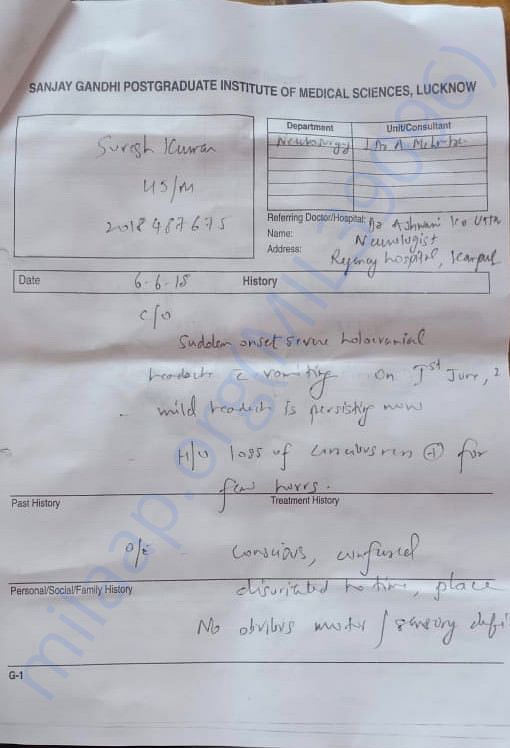 SANJAY GANDHI POSTGRADUATE INSTITUTE OF MEDICAL SCIENCES, LUCKNOW
Suresh Kumar
45/M
2018487675
Department Unit/Consultant
Neurosurgery Dr A
Referring Doctor/Hospital: Dr Ashwani
Name: Neurologist
Address: Regency hospital, Kanpur
Date 6-6-18 History
C/O
Sudden onset severe holocranial
headache c vomiting on 1st June, 2
- mild headache is persisting now
H/O loss of consciousness + for
few hours.
Past History Treatment History
O/E - conscious, confused
Personal/Social/Family History
disoriented to time, place
No obvious motor / sensory defi
G-1
milaap.org(MIL_39096)